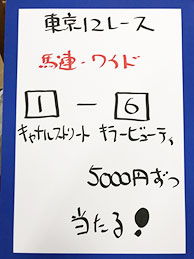 東京12レース
馬連・ワイド
1 － 6
キャナルストリート キラービューティ
5000円ずつ
当たる!